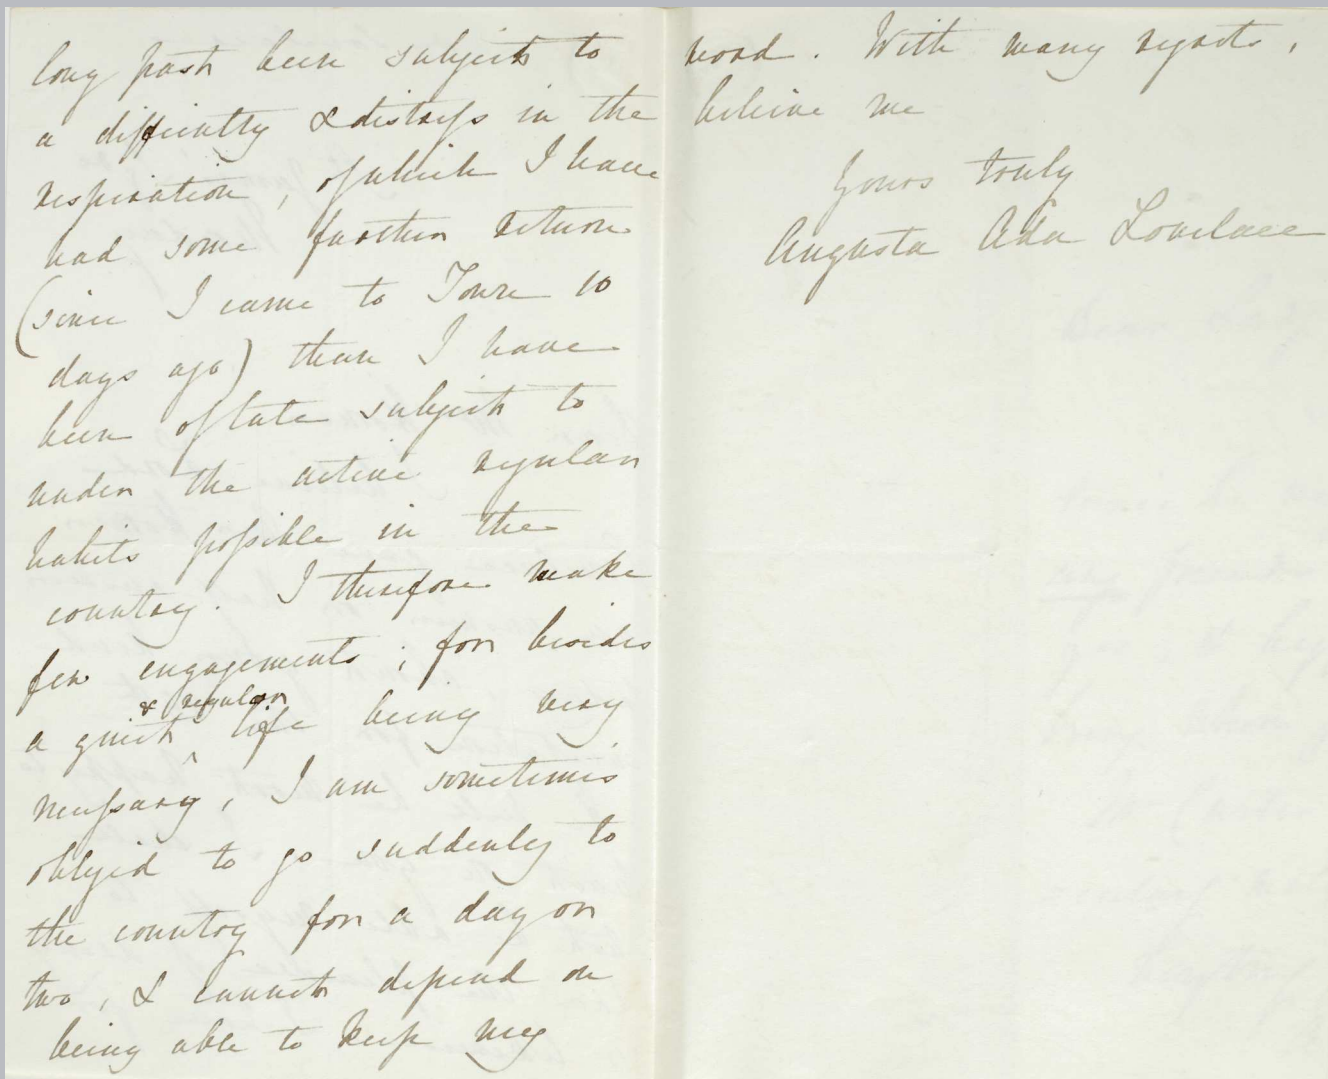 long past been subject to
a difficulty & distress in the
respiration, of which I have
had some further return
(since I came to Town 10
days ago) than I have
been of late subject to
under the active regular
habits possible in the
country. I therefore make
few engagements; for besides
& regular
a quiet ^ life being very
necessary, I am sometimes
obliged to go suddenly to
the country for a day or
two, & cannot depend on
being able to keep my
word. With many regrets,
believe me
Yours truly
Augusta Ada Lovelace